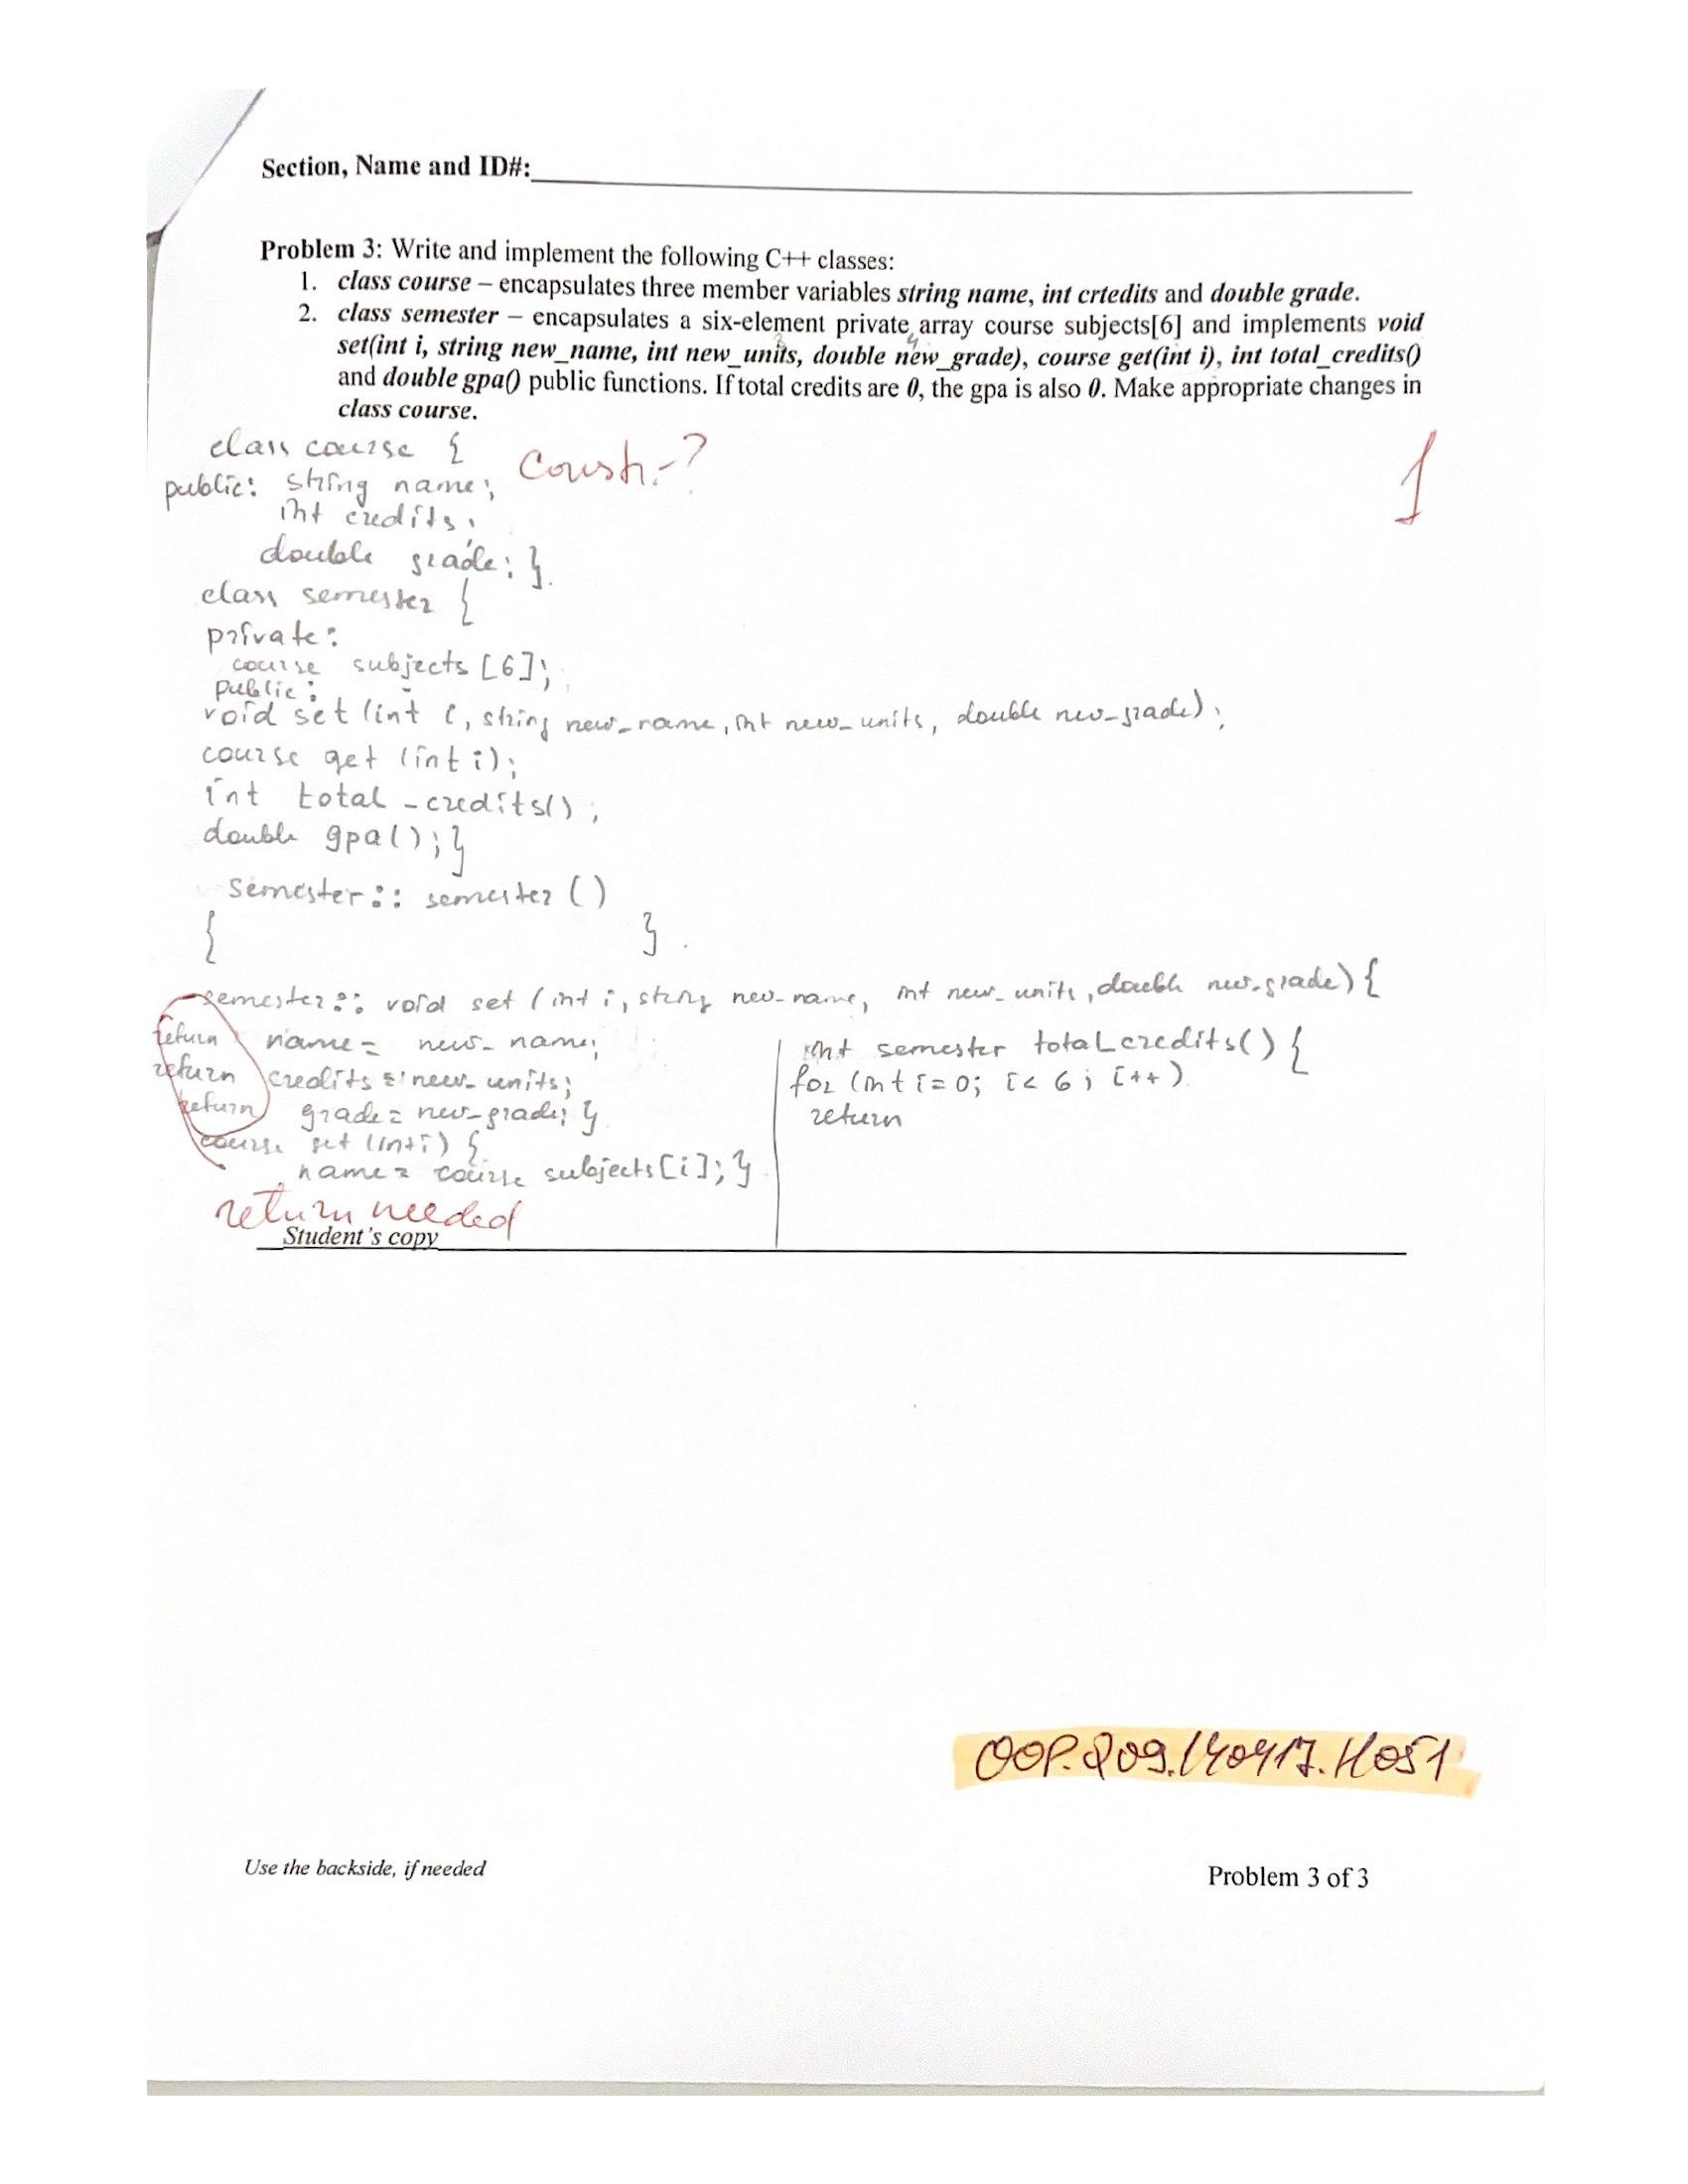 Section, Name and ID#:
Problem 3: Write and implement the following C++ classes:
1. class course – encapsulates three member variables string name, int crtedits and double grade.
2. class semester – encapsulates a six-element private array course subjects[6] and implements void
set(int i, string new_name, int new_units, double new_grade), course get(int i), int total_credits()
and double gpa() public functions. If total credits are 0, the gpa is also 0. Make appropriate changes in
class course.
class course {
Constr-?
1
public: string name;
int credits;
double grade; }
class semester {
private:
course subjects [6];
public:
void set (int i, string new_name, int new_units, double new_grade);
course get (int i);
int total_credits();
double gpa(); }
semester:: semester ()
{ }
semester:: void set (int i, string new_name, int new_units, double new_grade) {
return name = new_name;
return credits = new_units;
return grade = new_grade; }
course set (int i) {
name = course subjects[i]; }
int semester total_credits() {
for (int i=0; i<6; i++)
return
return needed
Student's copy
OOP.Q09.140417.H051
Use the backside, if needed
Problem 3 of 3